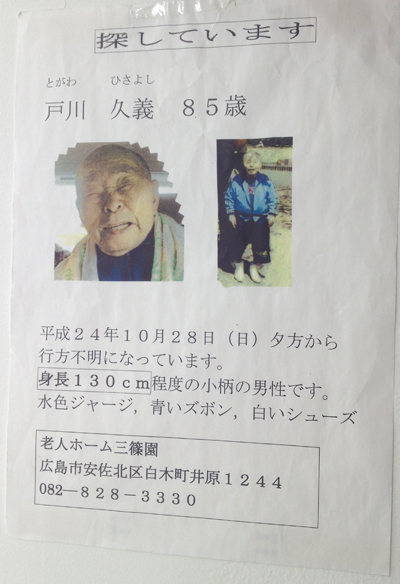 探しています
とがわ ひさよし
戸川 久義 ８５歳
平成２４年１０月２８日（日）夕方から
行方不明になっています。
身長１３０ｃｍ程度の小柄の男性です。
水色ジャージ，青いズボン，白いシューズ
老人ホーム三篠園
広島市安佐北区白木町井原１２４４
082―８２８－３３３０